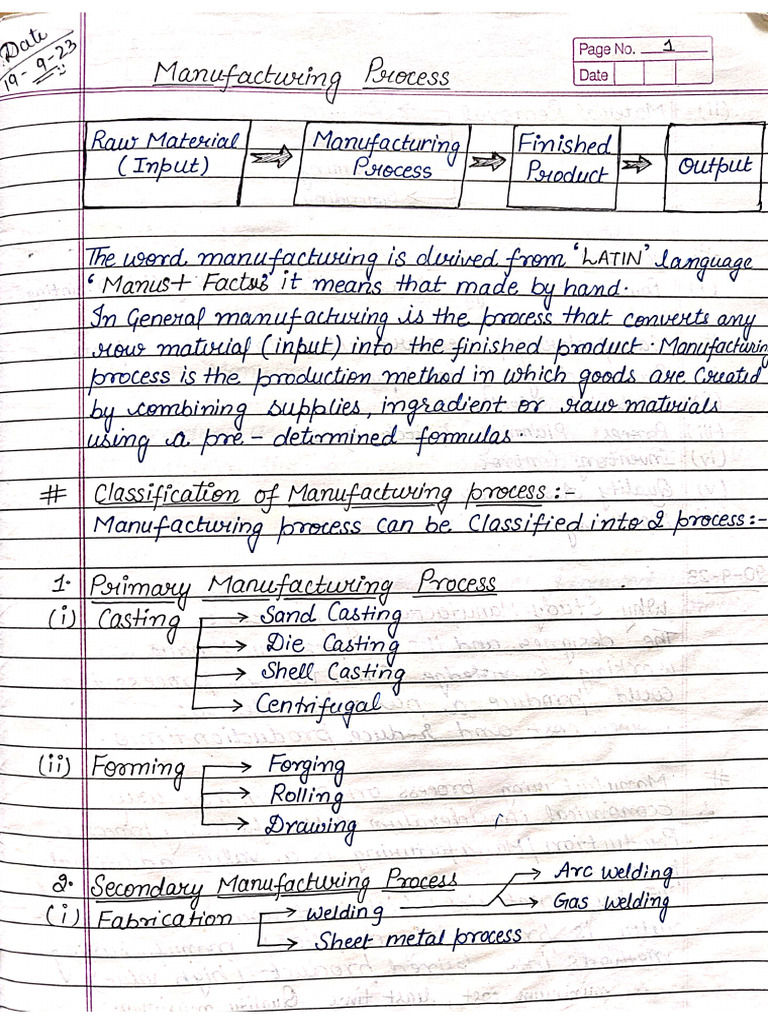 Date
19-9-23
Page No. 1
Date
Manufacturing Process
Raw Material
(Input)
Manufacturing
Process
Finished
Product
Output
The word manufacturing is derived from 'LATIN' language
'Manus+ Factus' it means that made by hand.
In General manufacturing is the process that converts any
raw material (input) into the finished product. Manufacturing
process is the production method in which goods are created
by combining supplies, ingradient or raw materials
using a pre-determined formulas.
# Classification of Manufacturing process:-
Manufacturing process can be Classified into 2 process:-
1. Primary Manufacturing Process
(i) Casting
Sand Casting
Die Casting
Shell Casting
Centrifugal
(ii) Forming
Forging
Rolling
Drawing
2. Secondary Manufacturing Process
(i) Fabrication
welding
Arc welding
Gas welding
Sheet metal process